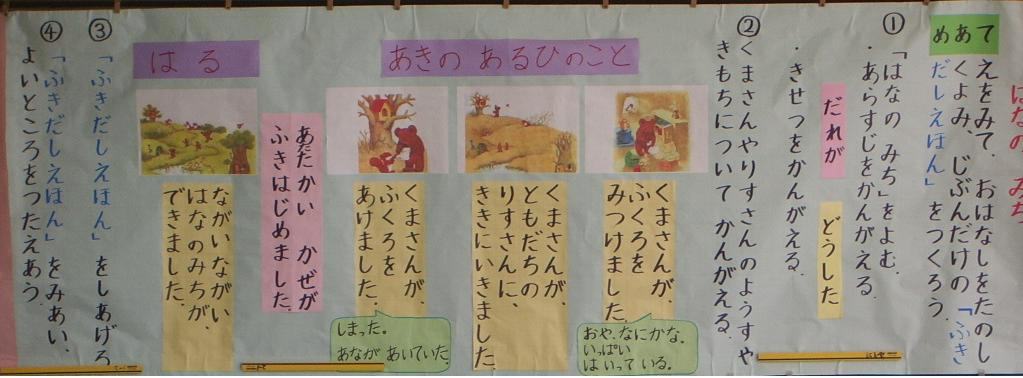 はなの みち
めあて
えをみて、おはなしをたのし
くよみ、じぶんだけの「ふき
だしえほん」をつくろう。
①「はなの みち」をよむ。
・あらすじをかんがえる。
だれが
どうした
・きせつをかんがえる。
②くまさんやりすさんのようすや
きもちについて かんがえる。
あきの あるひのこと
くまさんが、
ふくろを
みつけました。
おや、なにかな。
いっぱい
はいって いる。
くまさんが、
ともだちの
りすさんに、
ききにいきました
くまさんが、
ふくろを
あけました。
しまった。
あなが あいていた。
あたたかい かぜが
ふきはじめました。
はる
ながいながい
はなのみちが、
できました。
③「ふきだしえほん」をしあげる
④「ふきだしえほん」をみあい、
よいところをつたえあう。